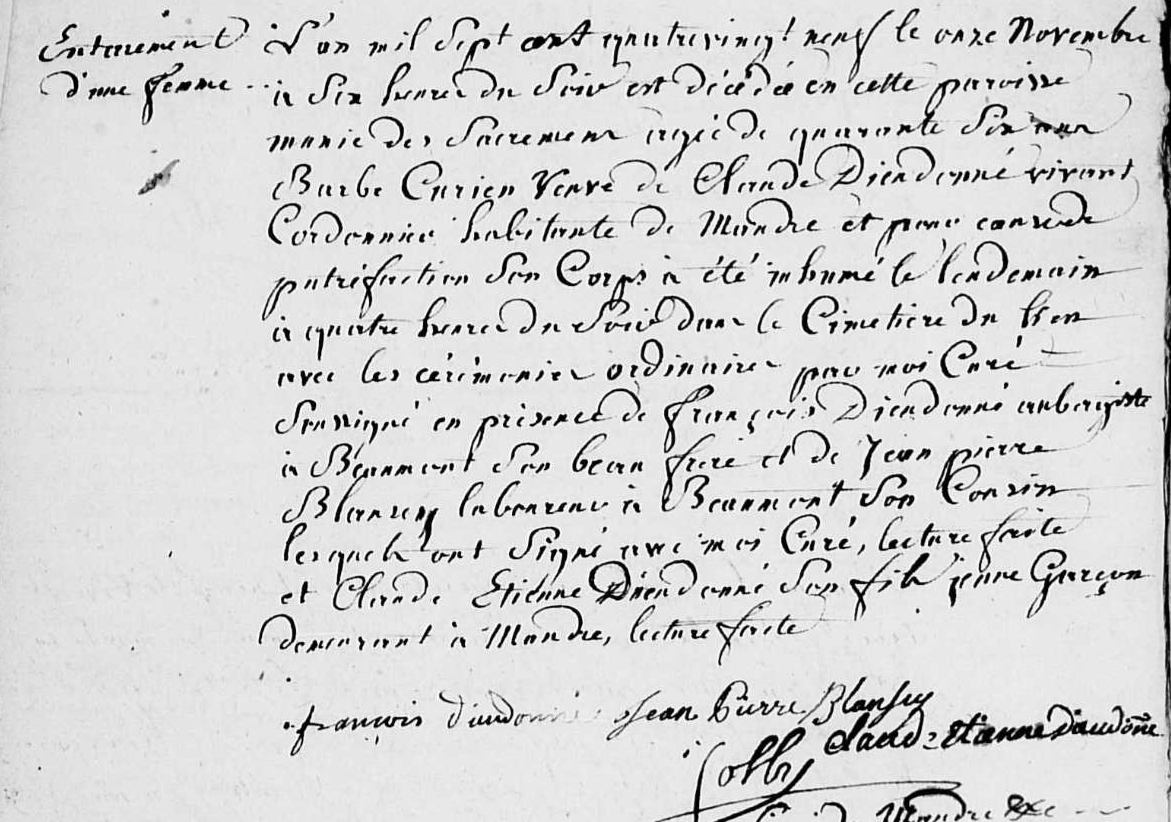 Enterement
d'une femme
L'an mil Sept cent quatrevingt neuf le onze Novembre
à Six heures du Soir est décédée en cette paroisse
munie des Sacremens agée de quarante Six ans
Barbe Curien Veuve de Claude Dieudonné vivant
Cordonnier habitante de Mandre et pour cause de
putréfaction Son Corps à été inhumé le lendemain
à quatre heures du Soir dans le Cimetiere du lieu
avec les cérémonies ordinaires par moi Curé
Soussigné en présence de françois Dieudonné aubergiste
à Beaumont Son beau frere et de Jean pierre
Blansey laboureur à Beaumont Son Cousin
lesquels ont Signé avec moi Curé, lecture faite
et Claude Etienne Dieudonné Son fils jeune Garçon
demeurant à Mandre, lecture faite
françois diudonné Jean Pierre Blansey
claud Etienne Diaudoné
Mandre